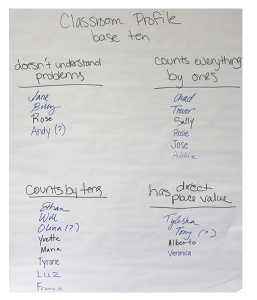 Classroom Profile
base ten
doesn't understand
problems
Jane
Bobby
Rose
Andy (?)
counts everything
by ones
Chad
Trevor
Sally
Rosie
Jose
Addie
counts by tens
Ethan
Will
Olivia (?)
Yvette
Maria
Tyrone
Luz
Franco
has direct
place value
Tylesha
Tony (?)
Alberto
Veronica